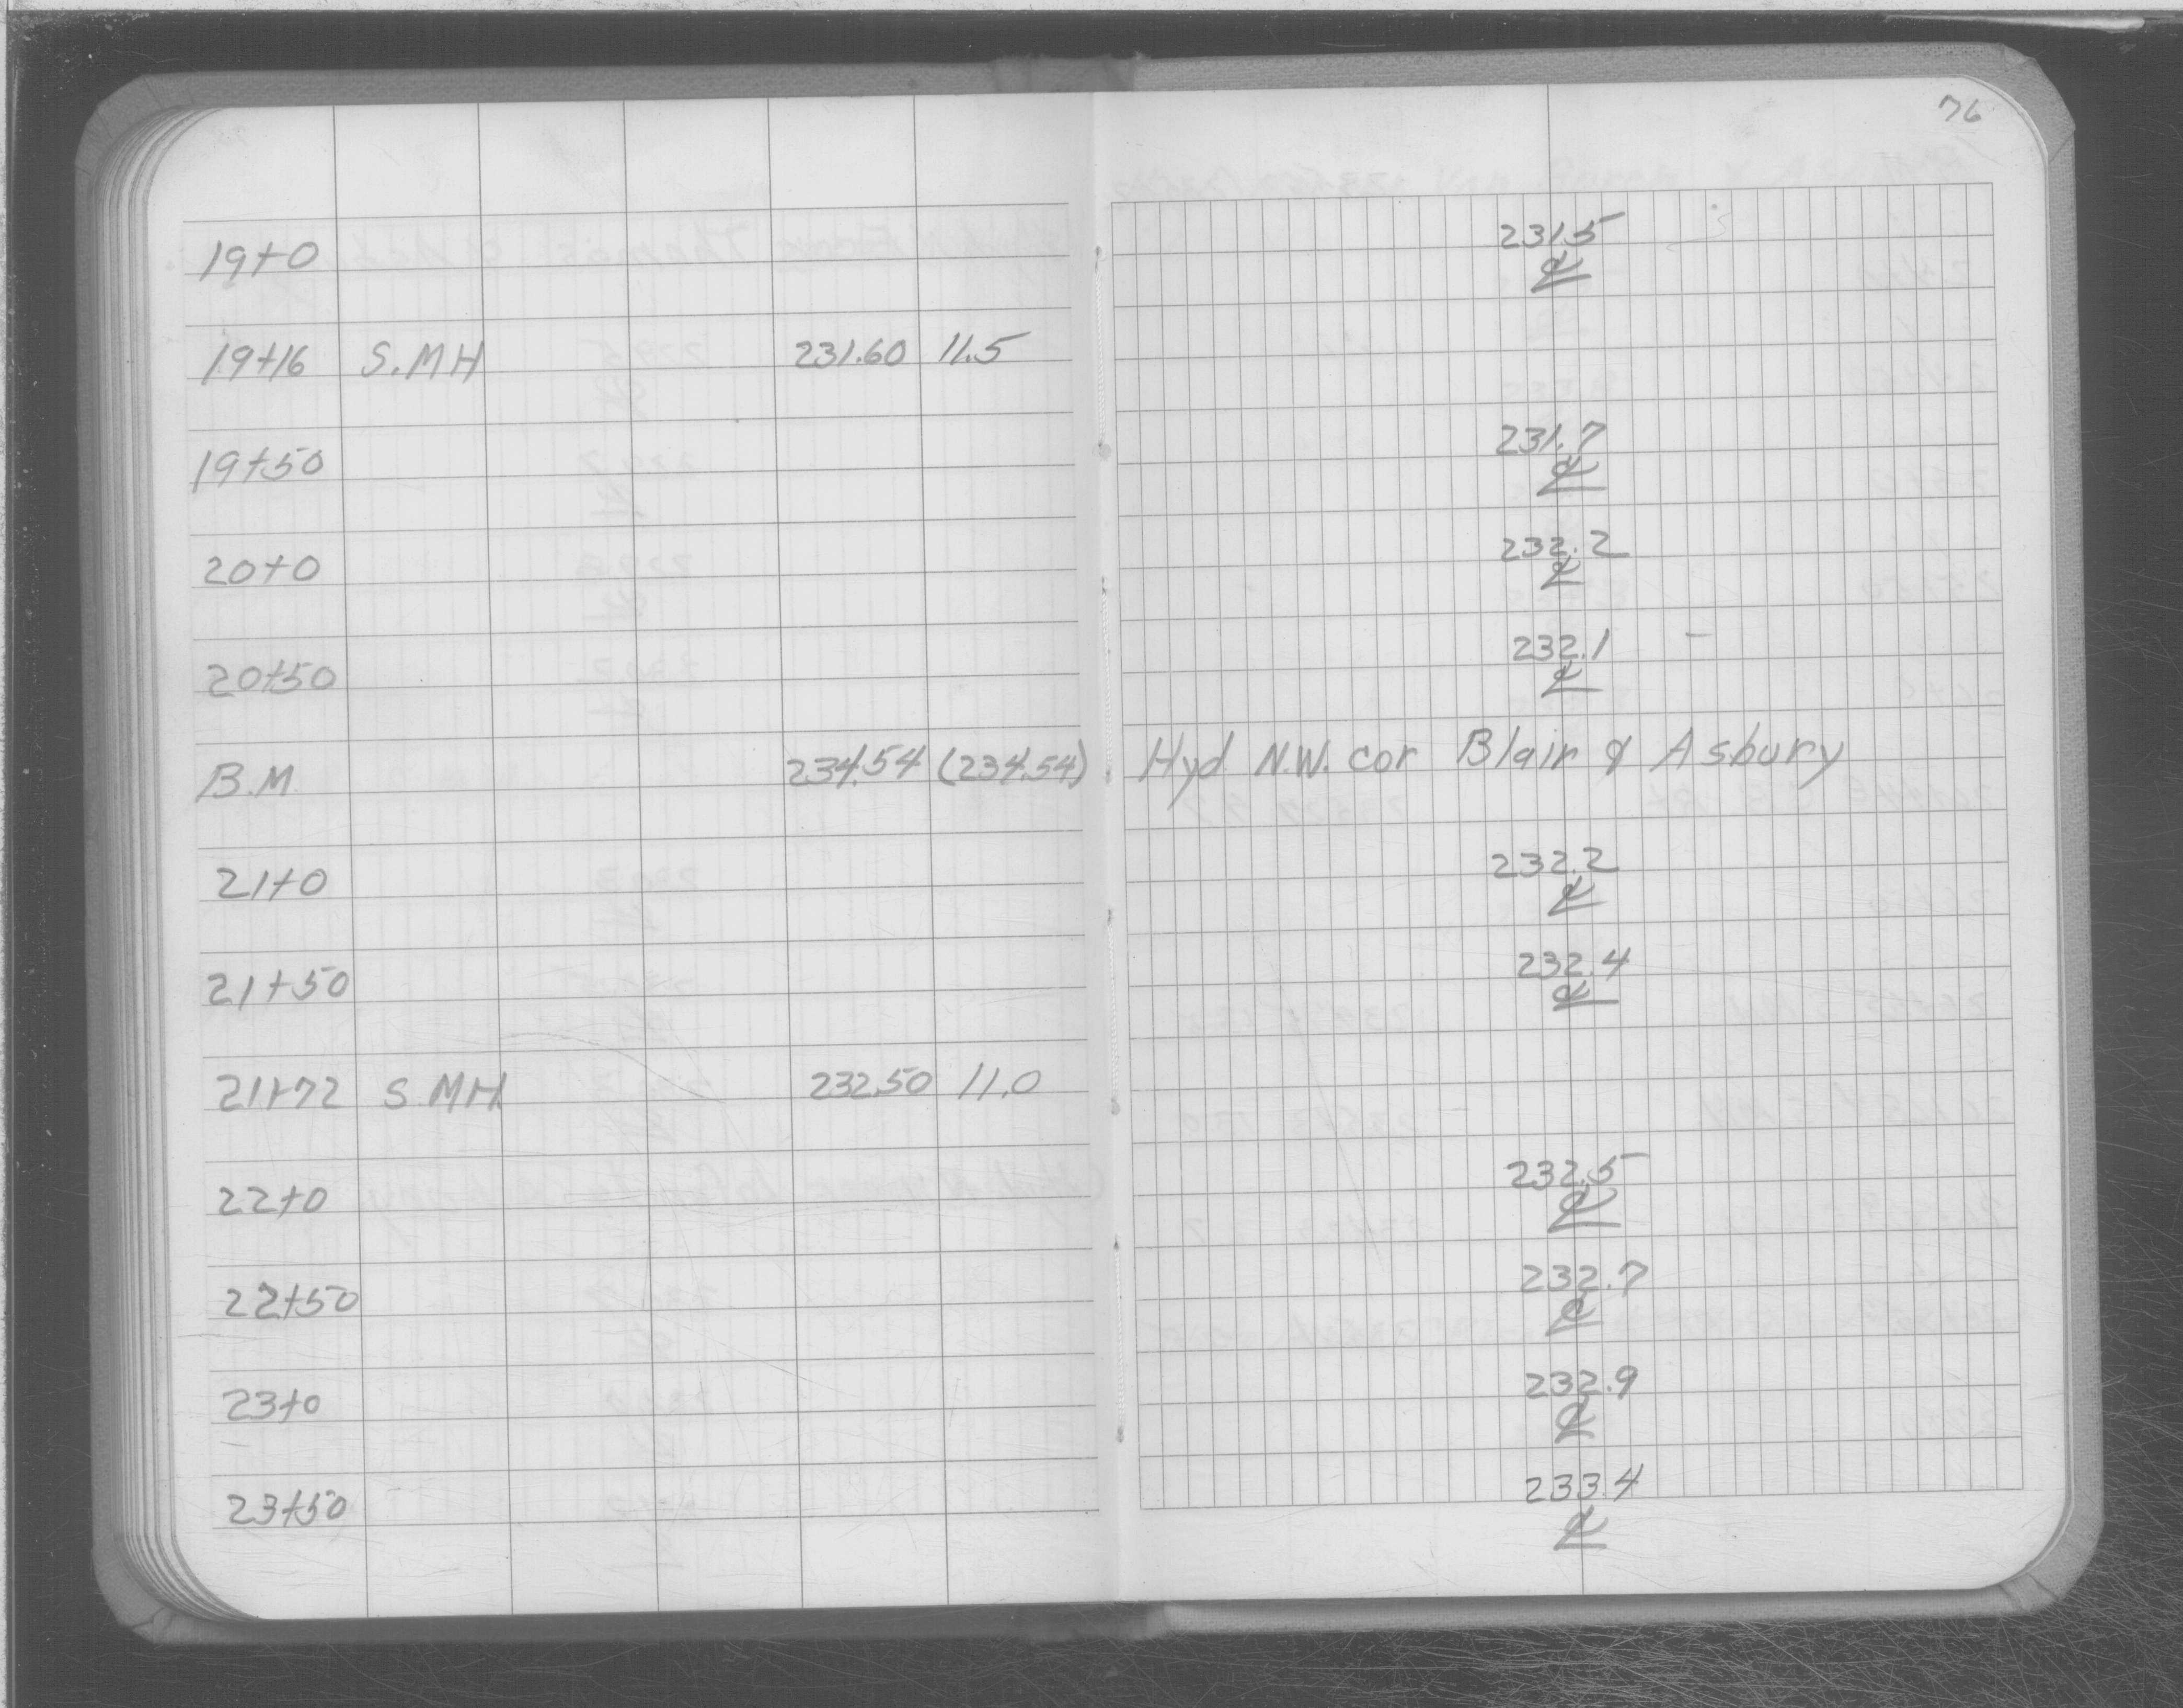 76
19+0 231.5
℄
19+16 S.MH 231.60 11.5
19+50 231.7
℄
20+0 232.2
℄
20+50 232.1 –
℄
B.M. 234.54 (234.54) Hyd N.W. cor Blair & Asbury
21+0 232.2
℄
21+50 232.4
℄
21+72 S MH 232.50 11.0
22+0 232.5
℄
22+50 232.7
℄
23+0 232.9
℄
23+50 233.4
℄